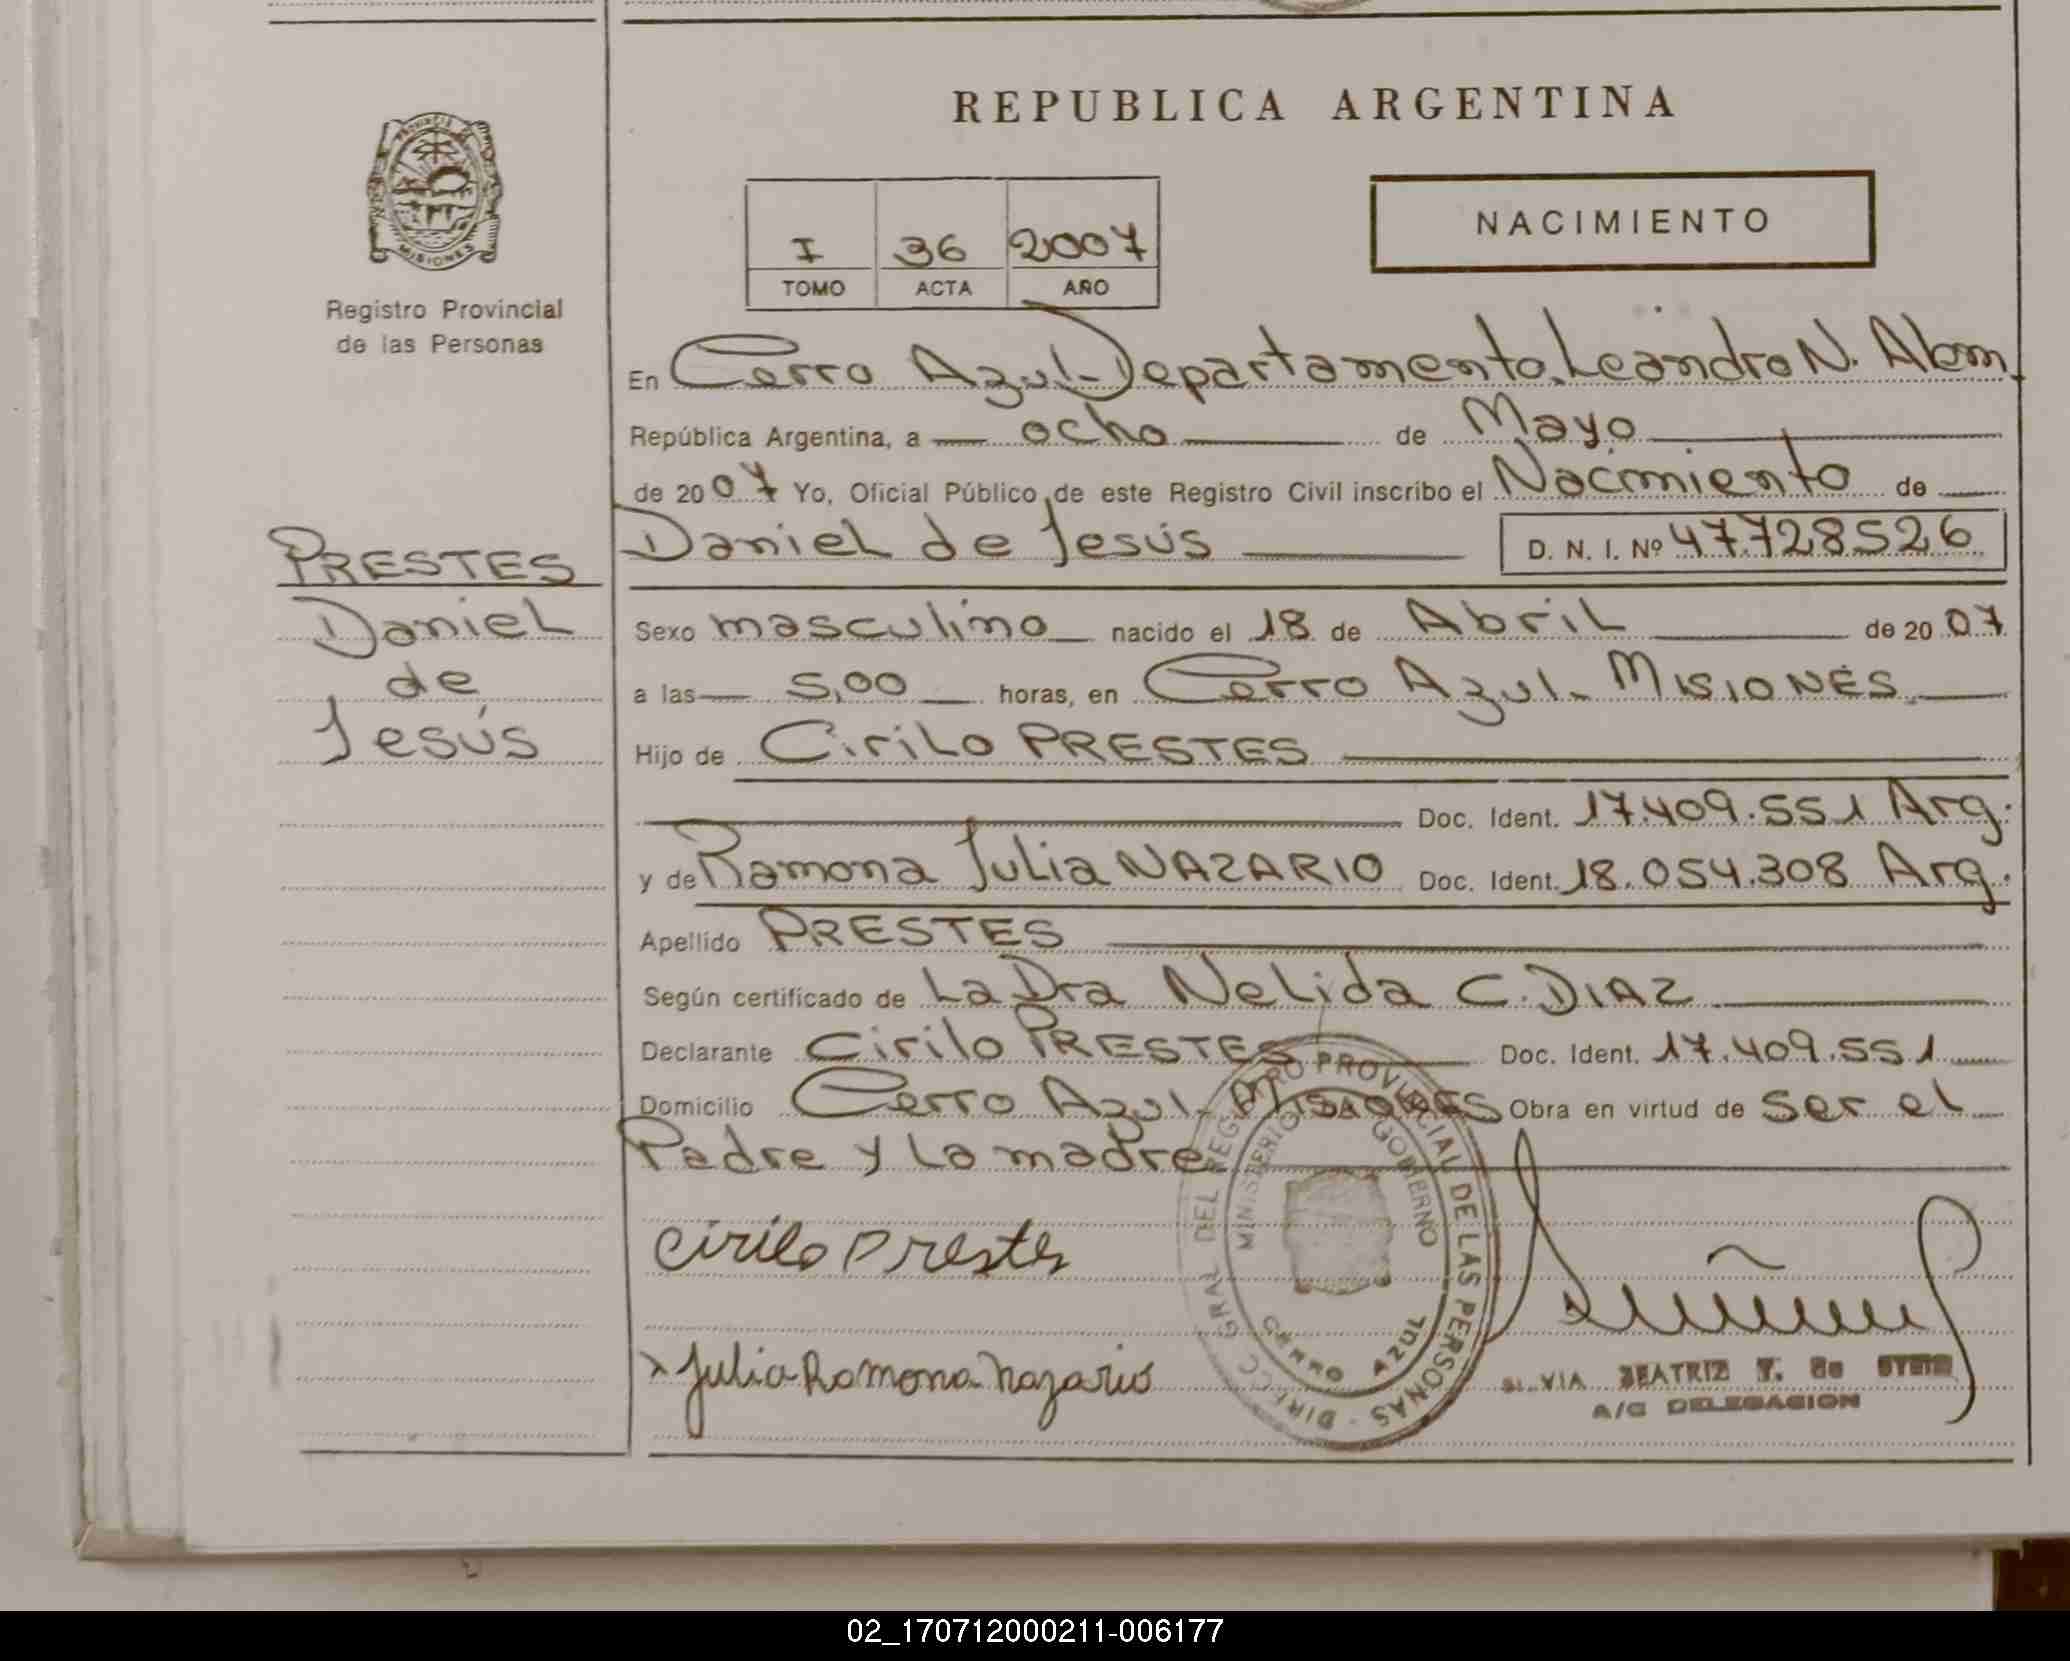 REPUBLICA ARGENTINA
PROVINCIA DE
MISIONES
Registro Provincial
de las Personas
NACIMIENTO
I 36 2007
TOMO ACTA AÑO
En Cerro Azul-Departamento Leandro N. Alem
República Argentina, a ocho de Mayo
de 2007 Yo, Oficial Público de este Registro Civil inscribo el Nacimiento de
Daniel de Jesús D. N. I. Nº 47.728526
PRESTES
Daniel
de
Jesús
Sexo masculino nacido el 18 de Abril de 2007
a las 5,00 horas, en Cerro Azul- MISIONES
Hijo de Cirilo PRESTES
Doc. Ident. 17.409.551 Arg.
y de Ramona Julia NAZARIO Doc. Ident. 18.054.308 Arg.
Apellido PRESTES
Según certificado de La Dra Nelida C. DIAZ
Declarante Cirilo PRESTES Doc. Ident. 17.409.551
Domicilio Cerro Azul- MISIONES Obra en virtud de ser el
Padre y La madre
Cirilo Prestes
x Julia Ramona Nazario
DIRECC. GRAL. DEL REGISTRO PROVINCIAL DE LAS PERSONAS -
MINISTERIO DE GOBIERNO
CERRO AZUL
SILVIA BEATRIZ Y. de
A/C DELEGACION
02_170712000211-006177